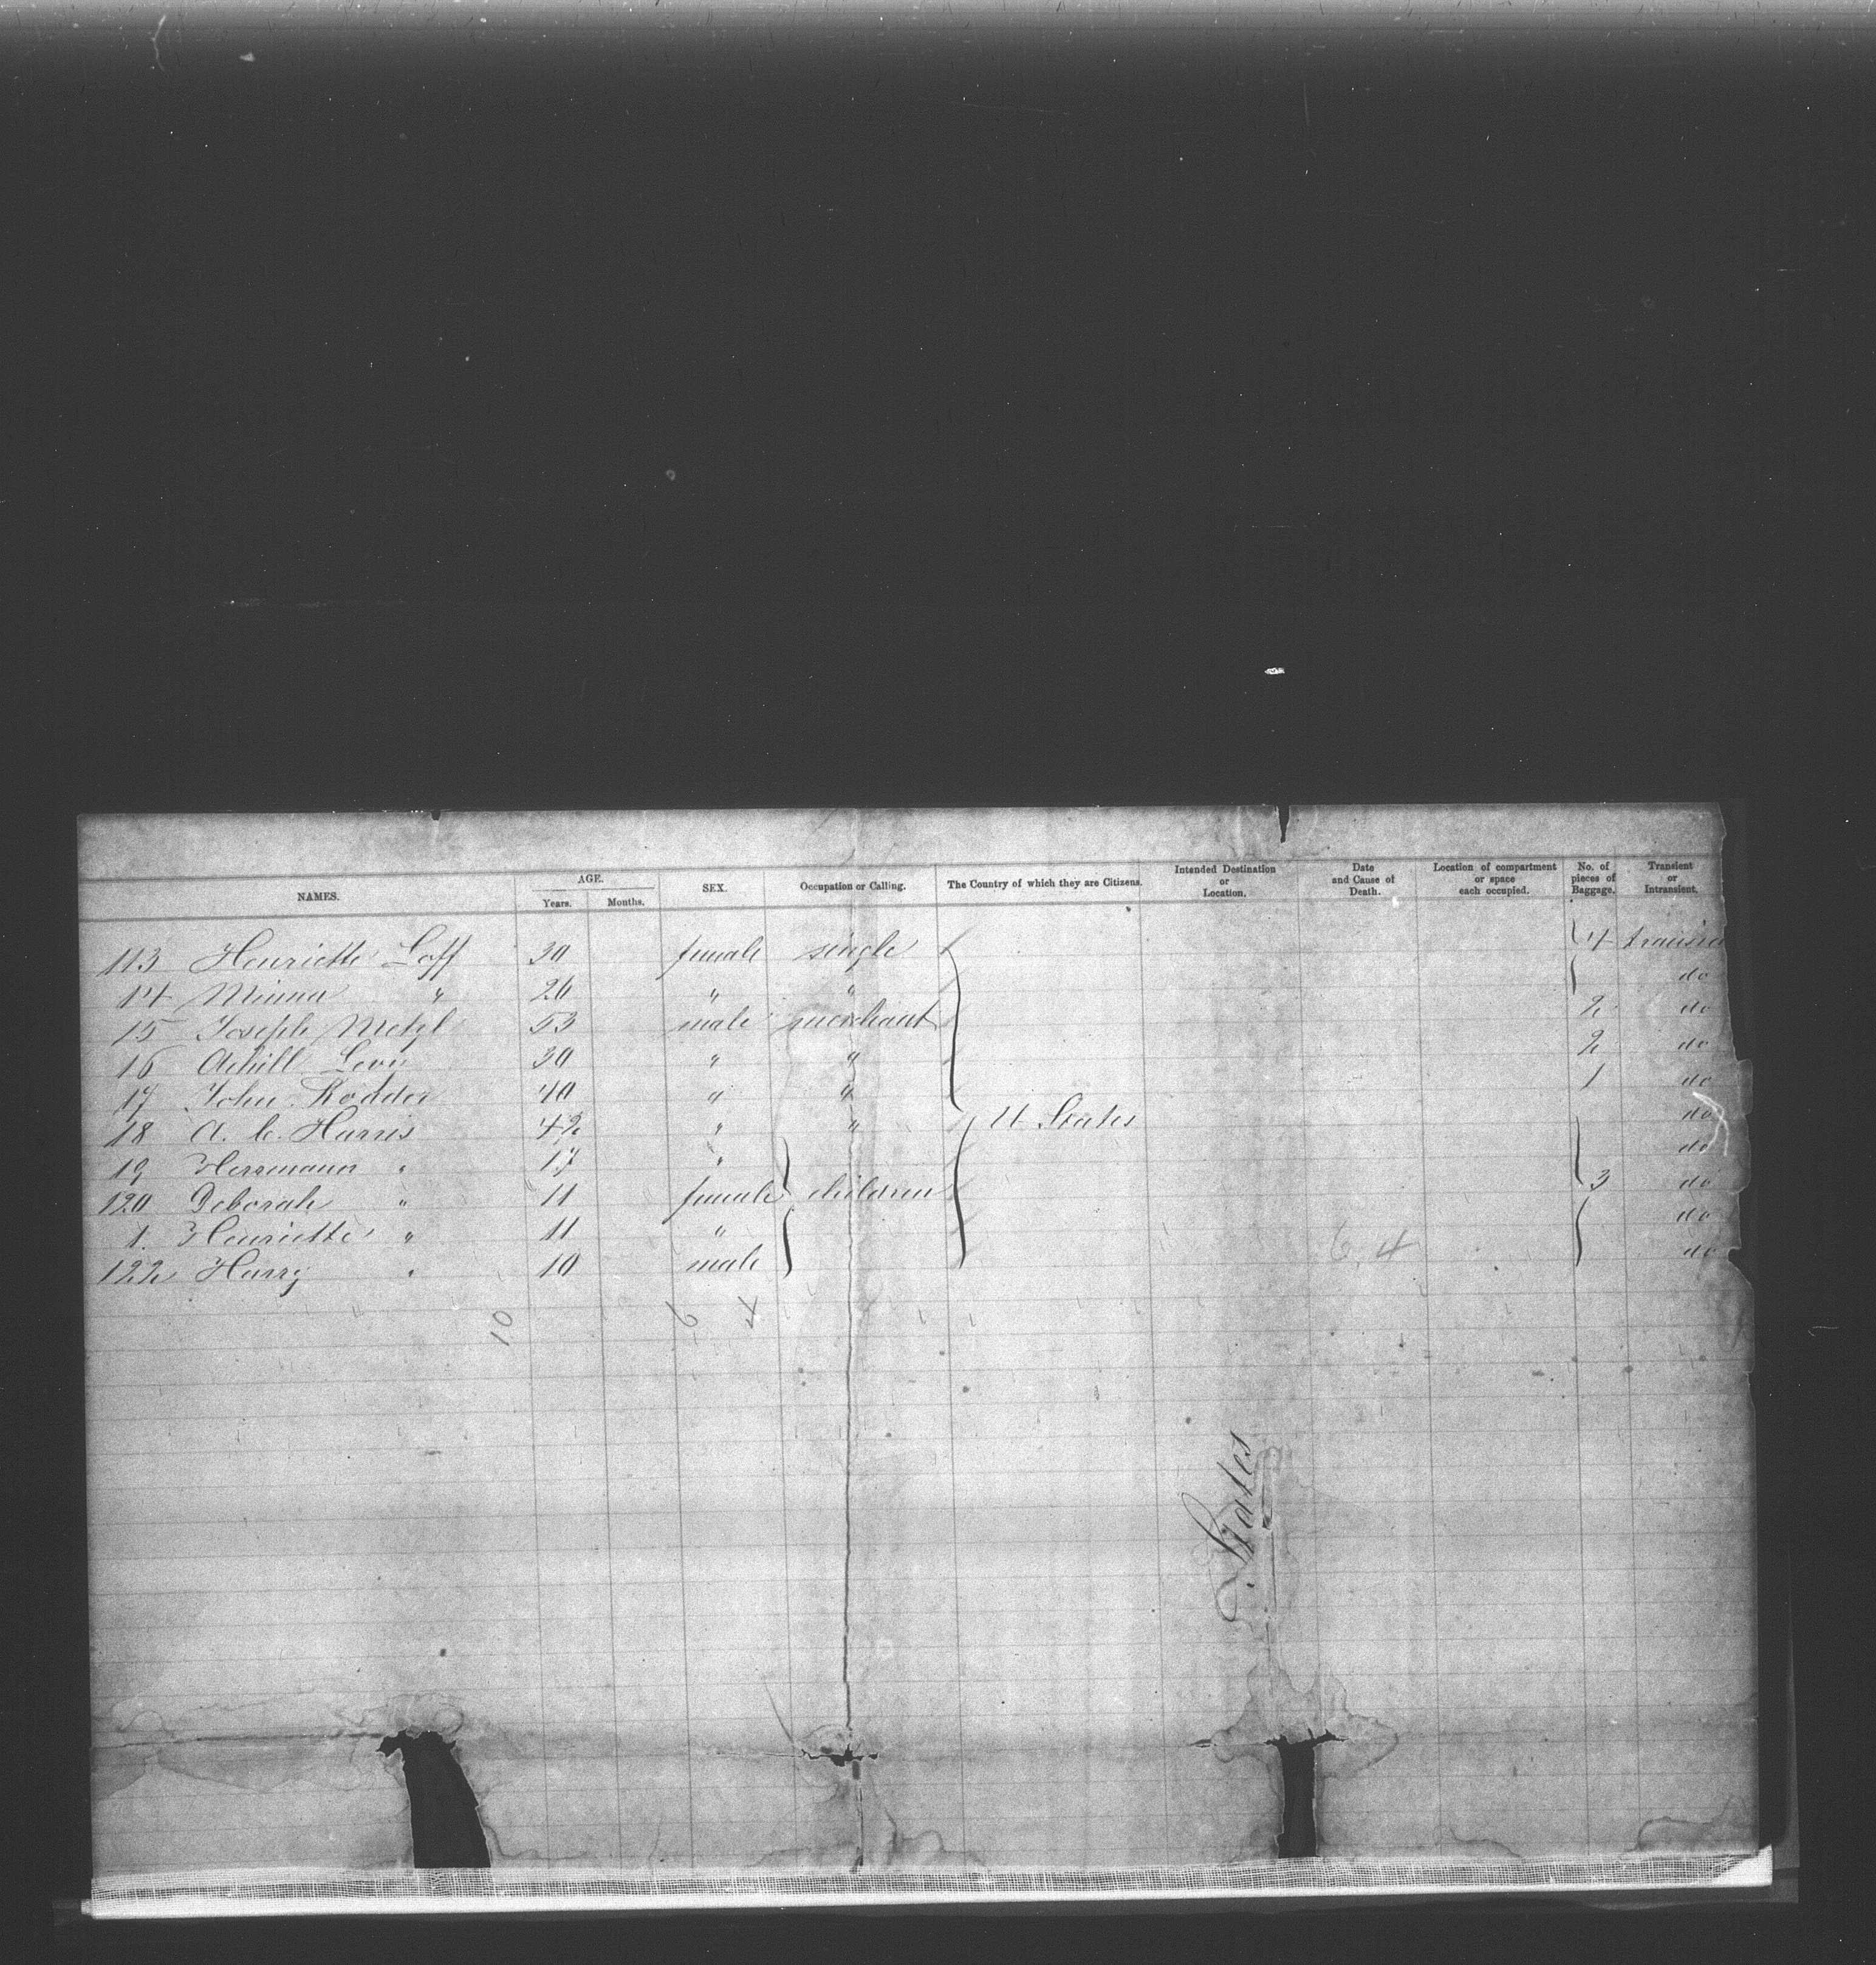 NAMES. AGE. Years. Months. SEX. Occupation or Calling. The Country of which they are Citizens. Intended Destination or Location. Date and Cause of Death. Location of compartment or space each occupied. No. of pieces of Baggage. Transient or Intransient.
113 Henriette Loff 30 female single 4 transien
14 Minna " 26 " " do
15 Joseph Metzl 53 male merchant 2 do
16 Achill Levy 30 " " 2 do
17 John Rodder 40 " " 1 do
18 A. C. Harris 42 " " U. States do
19 Herrmann " 17 " do
120 Deborah " 11 female children 3 do
1. Henriette " 11 " do
122 Harry " 10 male do
6.4
10 6 4
States